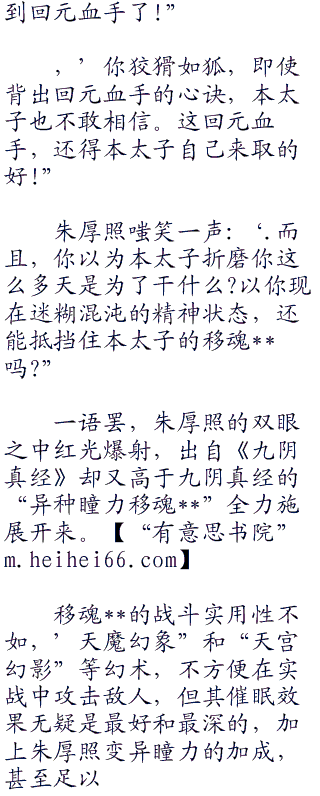 到回元血手了!”
，’你狡猾如狐，即使
背出回元血手的心诀，本太
子也不敢相信。这回元血
手，还得本太子自己来取的
好!”
朱厚照嗤笑一声：‘.而
且，你以为本太子折磨你这
么多天是为了干什么?以你现
在迷糊混沌的精神状态，还
能抵挡住本太子的移魂**
吗?”
一语罢，朱厚照的双眼
之中红光爆射，出自《九阴
真经》却又高于九阴真经的
“异种瞳力移魂**”全力施
展开来。【“有意思书院”
m.heihei66.com】
移魂**的战斗实用性不
如，’天魔幻象”和“天宫
幻影”等幻术，不方便在实
战中攻击敌人，但其催眠效
果无疑是最好和最深的，加
上朱厚照变异瞳力的加成，
甚至足以